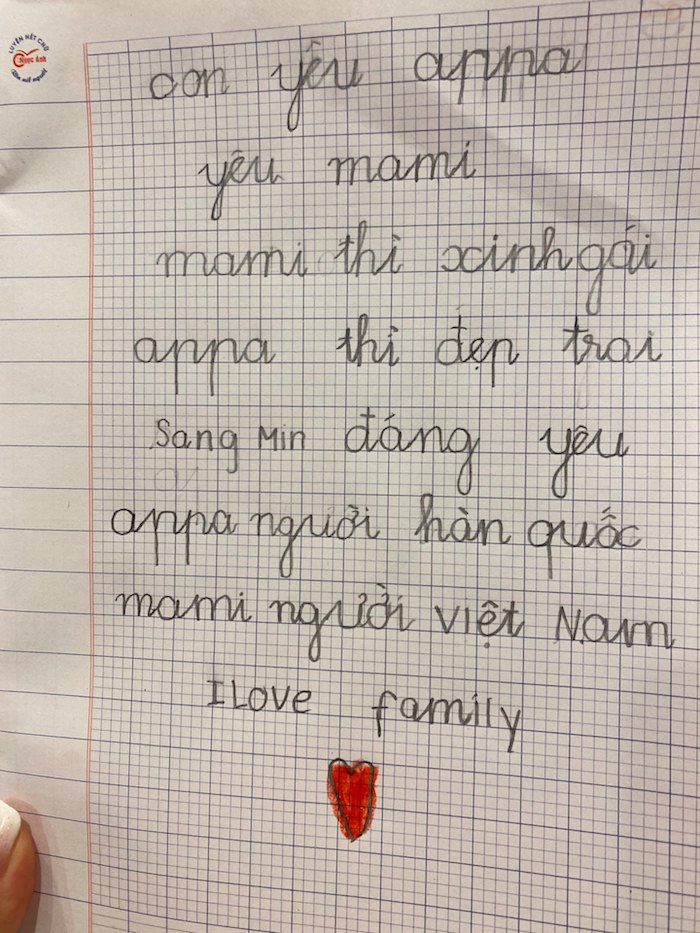 LUYỆN NÉT CHỮ
Ngọc Ánh
con yêu appa
yêu mami
mami thì xinh gái
appa thì đẹp trai
Sang Min đáng yêu
appa người hàn quốc
mami người việt Nam
I Love family